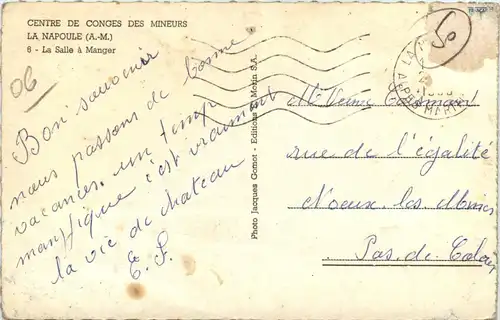 CENTRE DE CONGES DES MINEURS
LA NAPOULE (A.-M.)
8 - La Salle à Manger
06
Bon souvenir
nous passons de bonne
vacances. un temp
manifique c'est vraiment
la vie de chateau
E. S.
Photo Jacques Gomot - Editions De Morin S.A.
50
LA
ALPES MARIT
Me Veuve
rue de l'égalité
Noeux les Mines
Pas. de. Calais